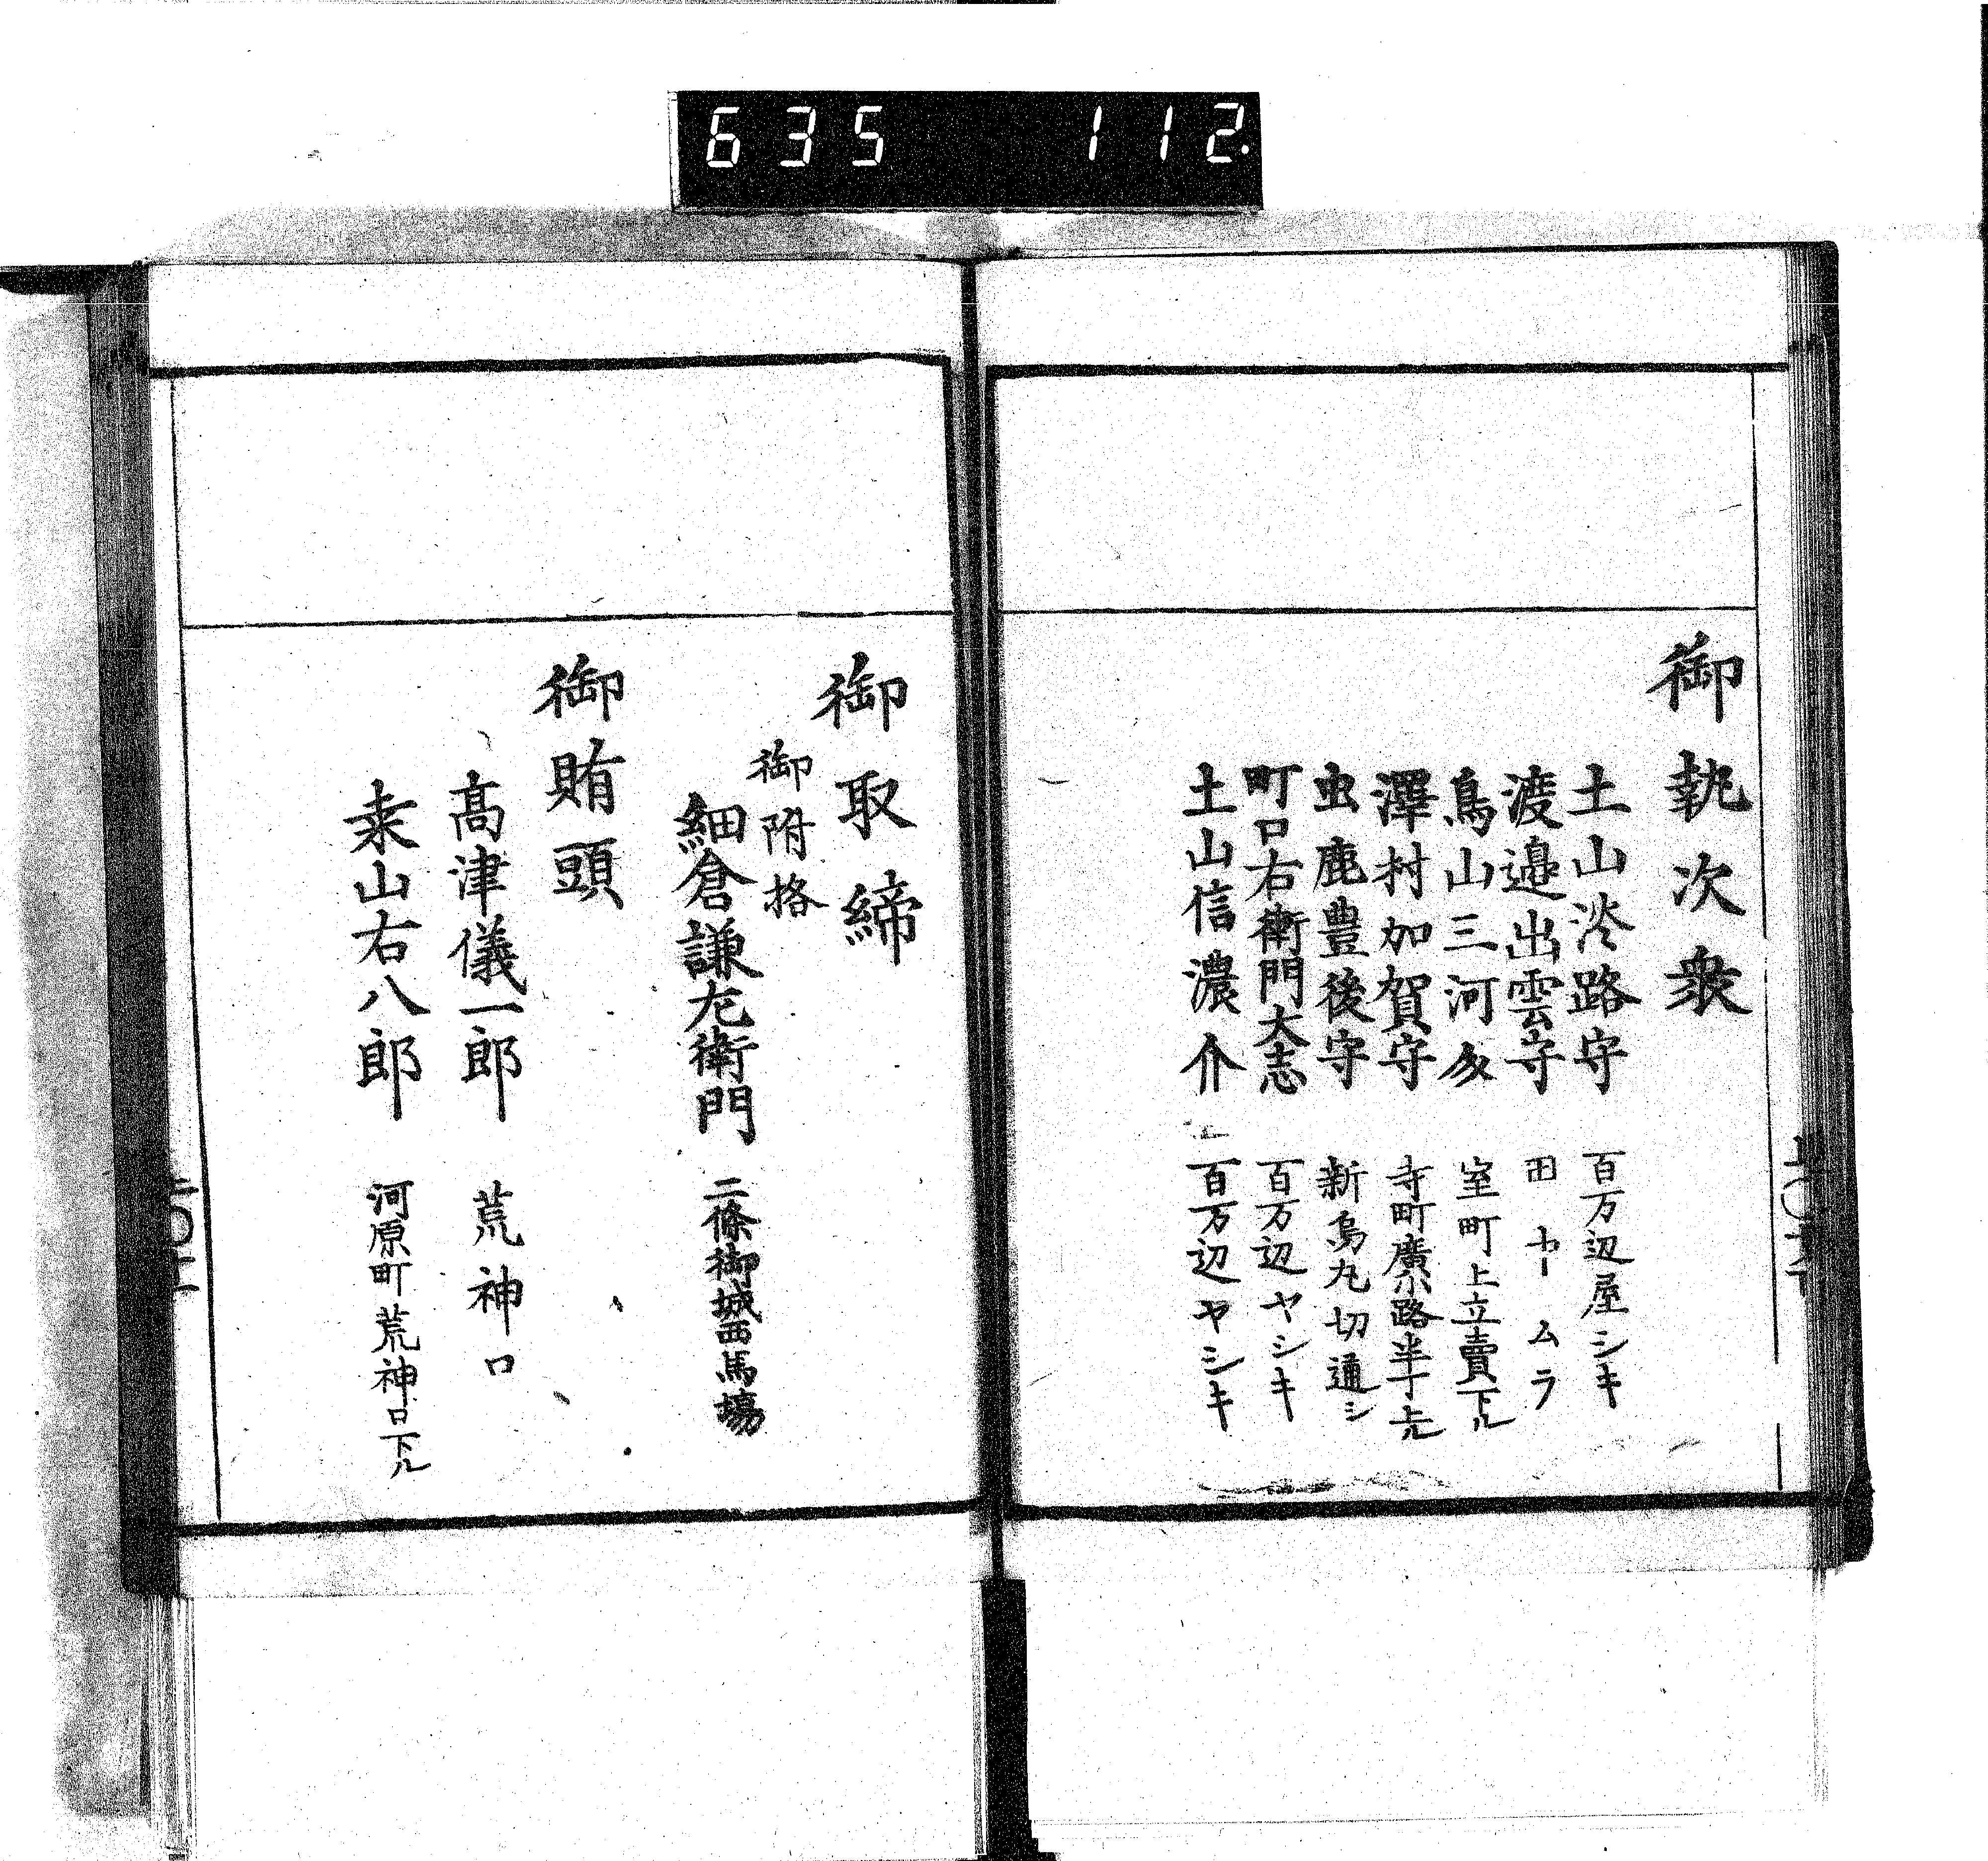 635 112.
御執次衆
土山淡路守 百万辺屋シキ
渡邉出雲守 田中ムラ
鳥山三河介 室町上立賣下ル
澤村加賀守 寺町廣小路半丁上ル
虫鹿豊後守 新烏丸切通シ
町口右衛門大志 百万辺ヤシキ
土山信濃介 百万辺ヤシキ
御取締
御附格
細倉謙左衛門 二條御城西馬場
御賄頭
高津儀一郎 荒神口
桒山右八郎 河原町荒神口下ル